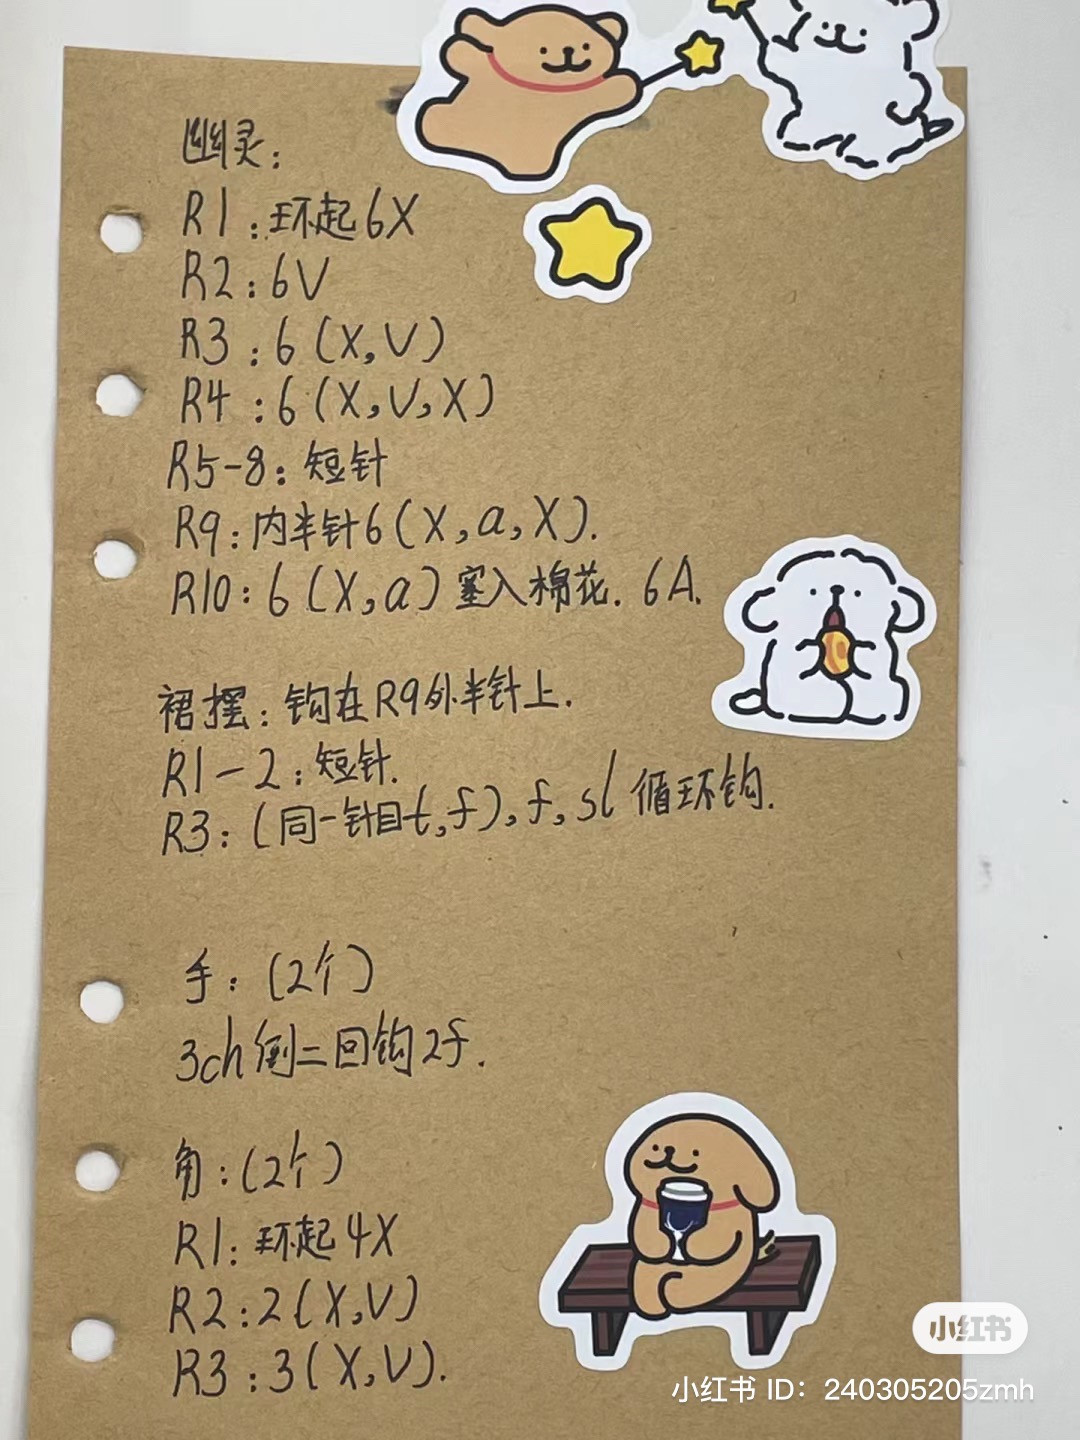 幽灵:
R1:环起6X
R2:6V
R3:6(X,V)
R4:6(X,V,X)
R5-8:短针
R9:内半针6(X,a,X).
R10:6(X,a)塞入棉花.6A.
裙摆:钩在R9外半针上.
R1-2:短针.
R3:(同一针目t,f),f,sl循环钩.
手:(2个)
3ch倒二回钩2f.
角:(2个)
R1:环起4X
R2:2(X,V)
R3:3(X,V).
小红书
小红书 ID:240305205zmh